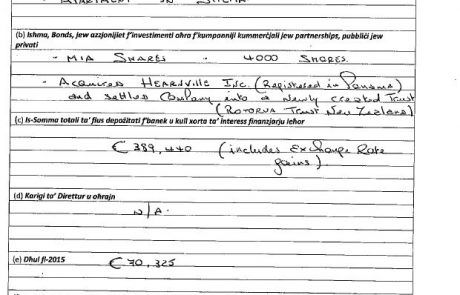 - APARTMENT IN SLIEMA
(b) Ishma, Bonds, jew azzjonijiet f'investimenti ohra f'kumpanniji kummerċjali jew partnerships, pubbliċi jew
privati
- MIA SHARES - 4000 SHARES.
- ACQUIRED HEARNVILLE INC. (Registered in Panama)
and settled Company into a newly created Trust
(ROTORUA TRUST New Zealand)
(c) Is-Somma totali ta' flus depożitati f'banek u kull xorta ta' interess finanzjarju iehor
€ 389,440 (includes Exchange Rate
gains).
(d) Karigi ta' Direttur u ohrajn
N/A.
(e) Dhul fl-2015 € 70,325